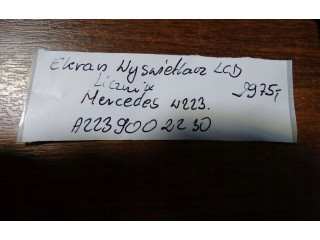 Ekran Wyświetlacz LCD
Licznik
Mercedes W223.
A223 900 22 30